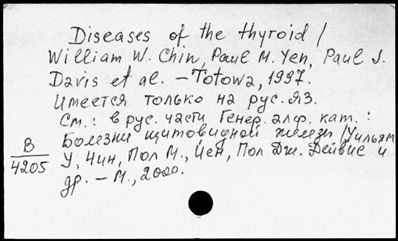 Diseases of the thyroid /
William W. Chin, Paul M. Yen, Paul J.
Davis et al. – Totowa, 1997.
Имеется только на рус. яз.
См.: в рус. части Генер. алф. кат.:
Болезни щитовидной железы / Уильям
У. Чин, Пол М., Йен, Пол Дж. Дейвис и
др. – М., 2000.
В
4205